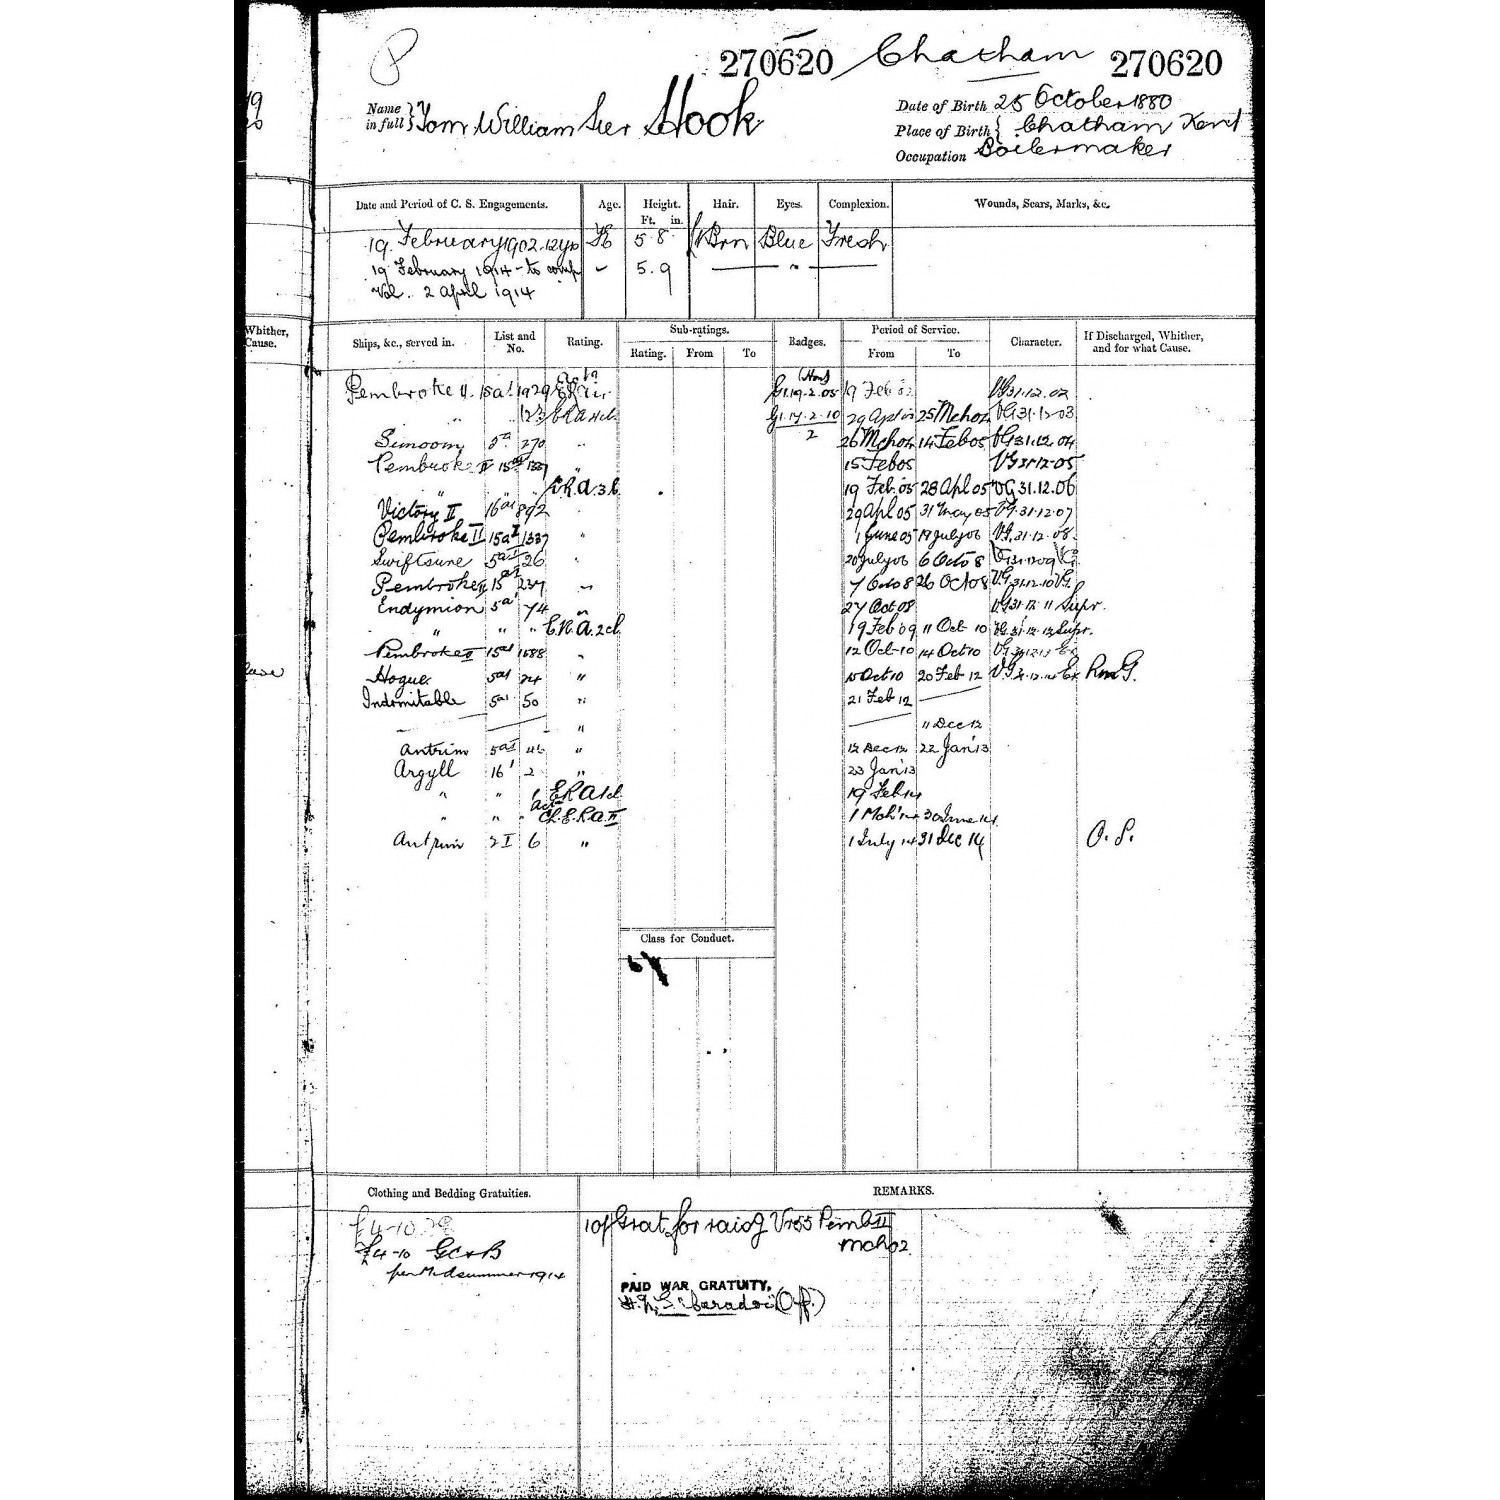 P
270620 Chatham 270620
Name in full } Tom William Hook
Date of Birth 25 October 1880
Place of Birth { Chatham Kent
Occupation Boilermaker
Date and Period of C. S. Engagements. Age. Height. Ft. in. Hair. Eyes. Complexion. Wounds, Scars, Marks, &c.
19 February 1902. 12 yrs 5 8 Brn Blue Fresh
19 February 1914 - to comp - 5.9 "
Vol. 2 April 1914
Whither, Cause.
Ships, &c., served in. List and No. Rating. Sub-ratings. Rating. From To Badges. Period of Service. From To Character. If Discharged, Whither, and for what Cause.
Pembroke II 15a1 1929 G1.19.2.05 19 Feb 02 VG 31.12.02
" E.R.A. 4 cl. G1.17.2.10 29 Apl 02 25 Mch 04 VG 31.12.03
2
Simoom 270 " 26 Mch 04 14 Feb 05 VG 31.12.04
Pembroke II 15a1 1337 " 15 Feb 05 VG 31.12.05
" " " E.R.A. 3 cl. 19 Feb. 05 28 Apl 05 VG 31.12.06
Victory II 16a1 892 29 Apl 05 31 May 05 VG 31.12.07
Pembroke II 15a1 1337 " 1 June 05 19 July 06 VG 31.12.08
Swiftsure 5a1 26 " 20 July 06 6 Oct 08 VG 31.12.09 VG
Pembroke II 15a1 237 " 7 Oct 08 26 Oct 08 VG 31.12.10 VG
Endymion 5a1 74 " 27 Oct 08 VG 31.12.11 Supr.
" " " E.R.A. 2 cl 19 Feb 09 11 Oct 10 VG 31.12.12 Supr.
Pembroke II 15a1 1588 " 12 Oct 10 14 Oct 10 VG
Hogue 5a1 24 " 15 Oct 10 20 Feb 12 VG Ex RMG.
Indomitable 5a1 50 " 21 Feb 12
" 11 Dec 12
Antrim 5a1 46 " 12 Dec 12 22 Jan 13
Argyll 16 1 2 " 23 Jan 13
" " 1 E.R.A. 1 cl 19 Feb 14
" " " act Ch. E.R.A. II 1 Mch 14 30 June 14
Antrim 2 I 6 " 1 July 14 31 Dec 14 O. S.
Class for Conduct.
Clothing and Bedding Gratuities.
REMARKS.
£4-10
£4-10 GC & B
per Midsummer 1914
10/ Grat. for raisg V755 Pemb II
Mch 02
PAID WAR GRATUITY.
H.M.S. "Caradoc" (Off.)